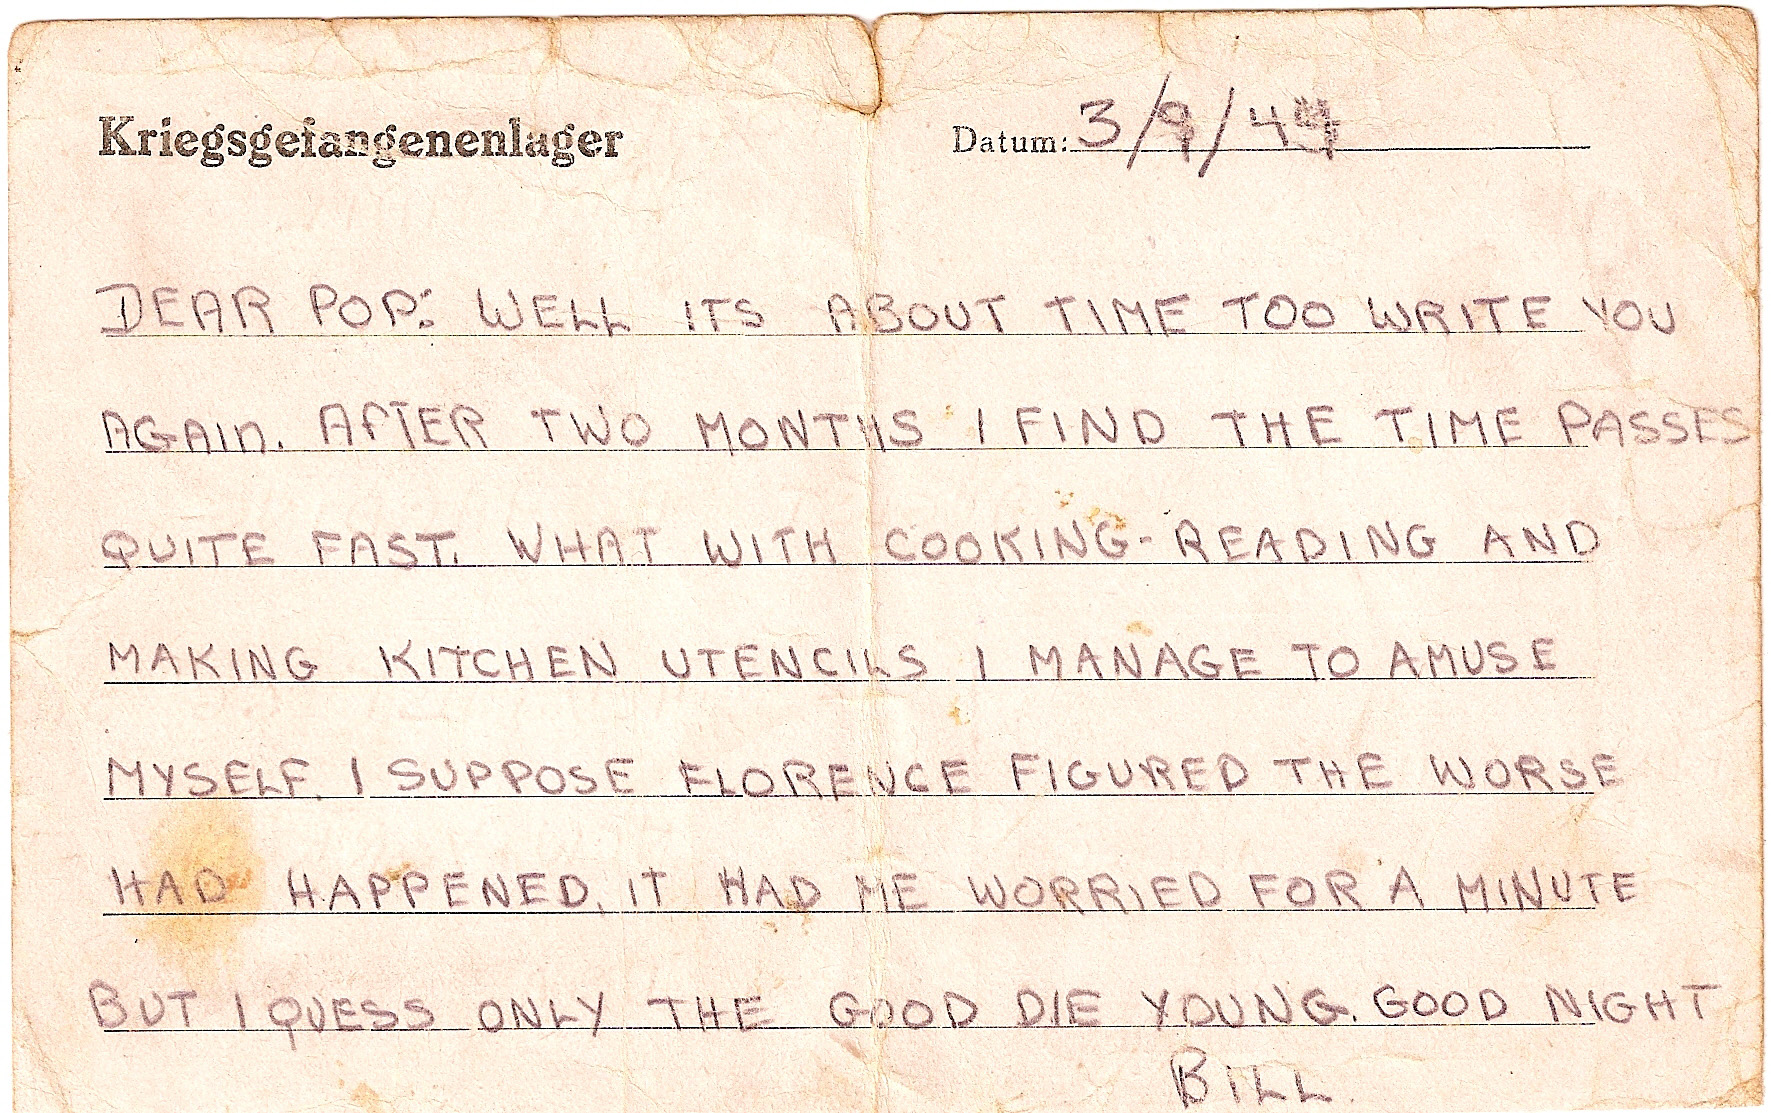 Kriegsgefangenenlager Datum: 3/9/44
DEAR POP: WELL ITS ABOUT TIME TOO WRITE YOU
AGAIN. AFTER TWO MONTHS I FIND THE TIME PASSES
QUITE FAST. WHAT WITH COOKING - READING AND
MAKING KITCHEN UTENCILS I MANAGE TO AMUSE
MYSELF. I SUPPOSE FLORENCE FIGURED THE WORSE
HAD HAPPENED. IT HAD ME WORRIED FOR A MINUTE
BUT I QUESS ONLY THE GOOD DIE YOUNG. GOOD NIGHT
BILL.